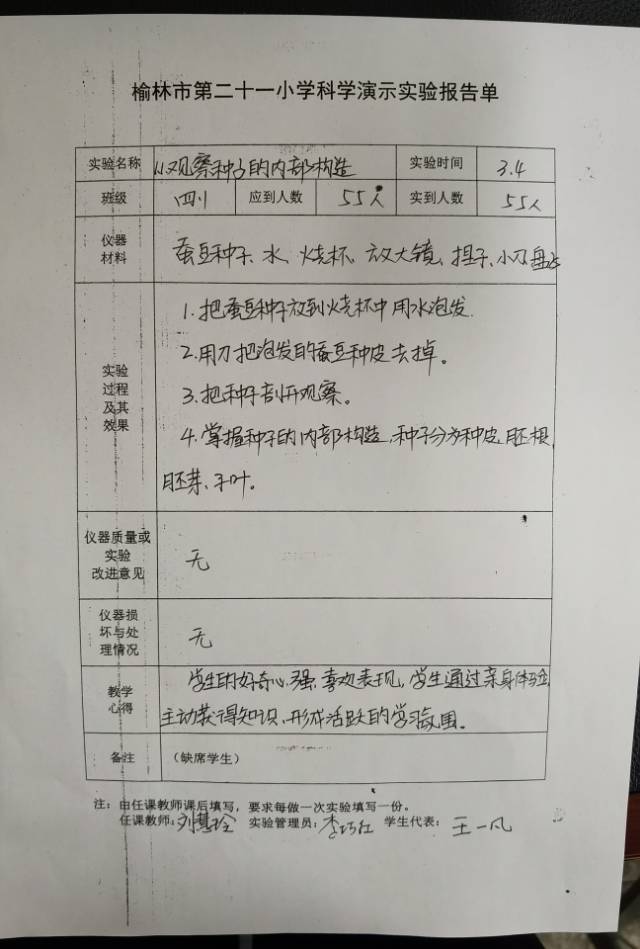 榆林市第二十一小学科学演示实验报告单
实验名称 观察种子的内部构造 实验时间 3.4
班级 四1 应到人数 55人 实到人数 55人
仪器
材料
蚕豆种子、水、烧杯、放大镜、捏子、小刀
实验
过程
及其
效果
1.把蚕豆种子放到烧杯中用水泡发.
2.用刀把泡发的蚕豆种皮去掉。
3.把种子剖开观察。
4.掌握种子的内部构造,种子分为种皮、胚根、
胚芽、子叶。
仪器质量或
实验
改进意见
无
仪器损
坏与处
理情况
无
教学
心得
学生的好奇心强,喜欢表现,学生通过亲身体验
主动获得知识,形成活跃的学习氛围。
备注 (缺席学生)
注:由任课教师课后填写,要求每做一次实验填写一份。
任课教师:刘慧玲 实验管理员:李巧红 学生代表:王一凡